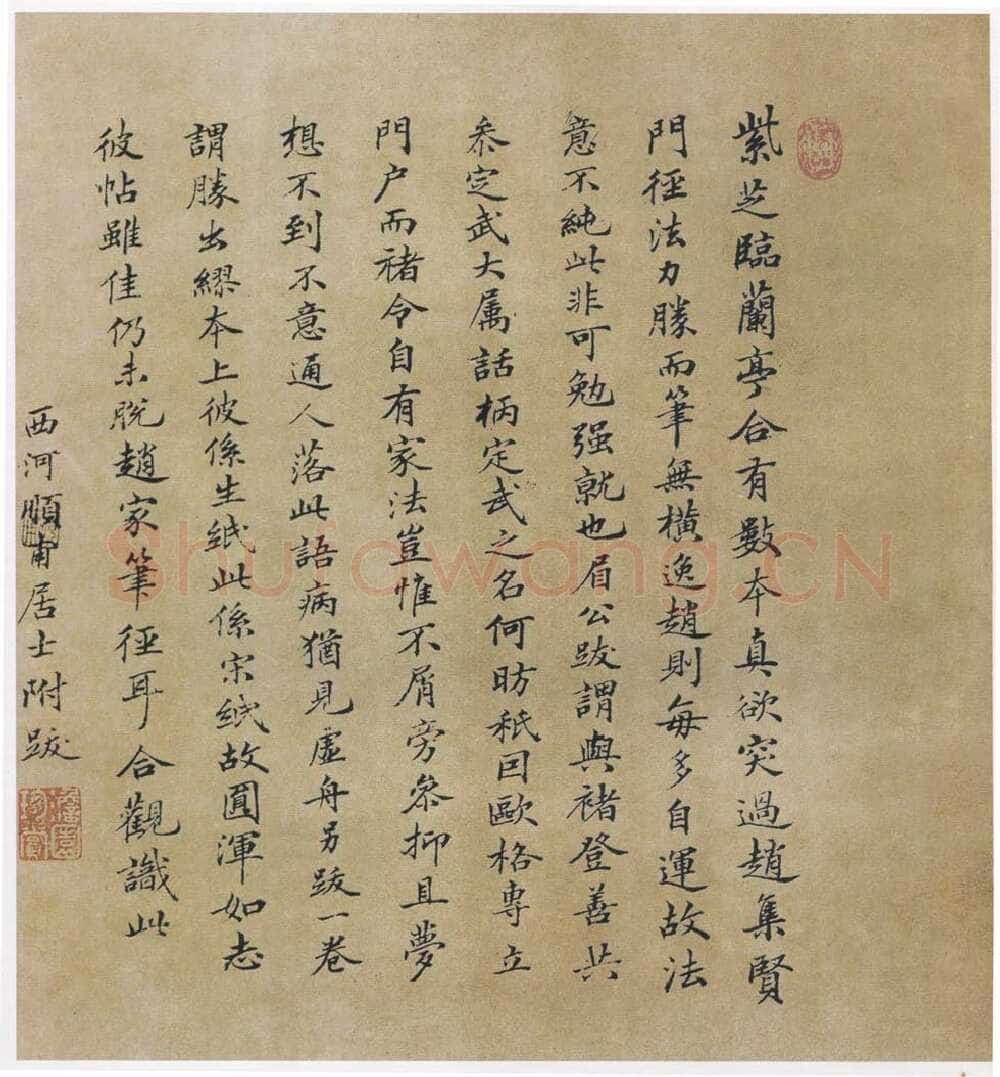 紫芝臨蘭亭合有數本真欲突過趙集賢
門徑法力勝而筆無橫逸趙則每多自運故法
意不純此非可勉强就也眉公跋謂與褚登善共
叅定武大属話柄定武之名何昉秖因歐格専立
門户而褚令自有家法豈惟不屑旁叅抑且夢
想不到不意通人落此語病猶見虛舟另跋一卷
謂勝出繆本上彼係生紙此係宋紙故圓渾如志
彼帖雖佳仍未脫趙家筆徑耳合觀識此
西河順甫居士附跋
Shufawang.CN